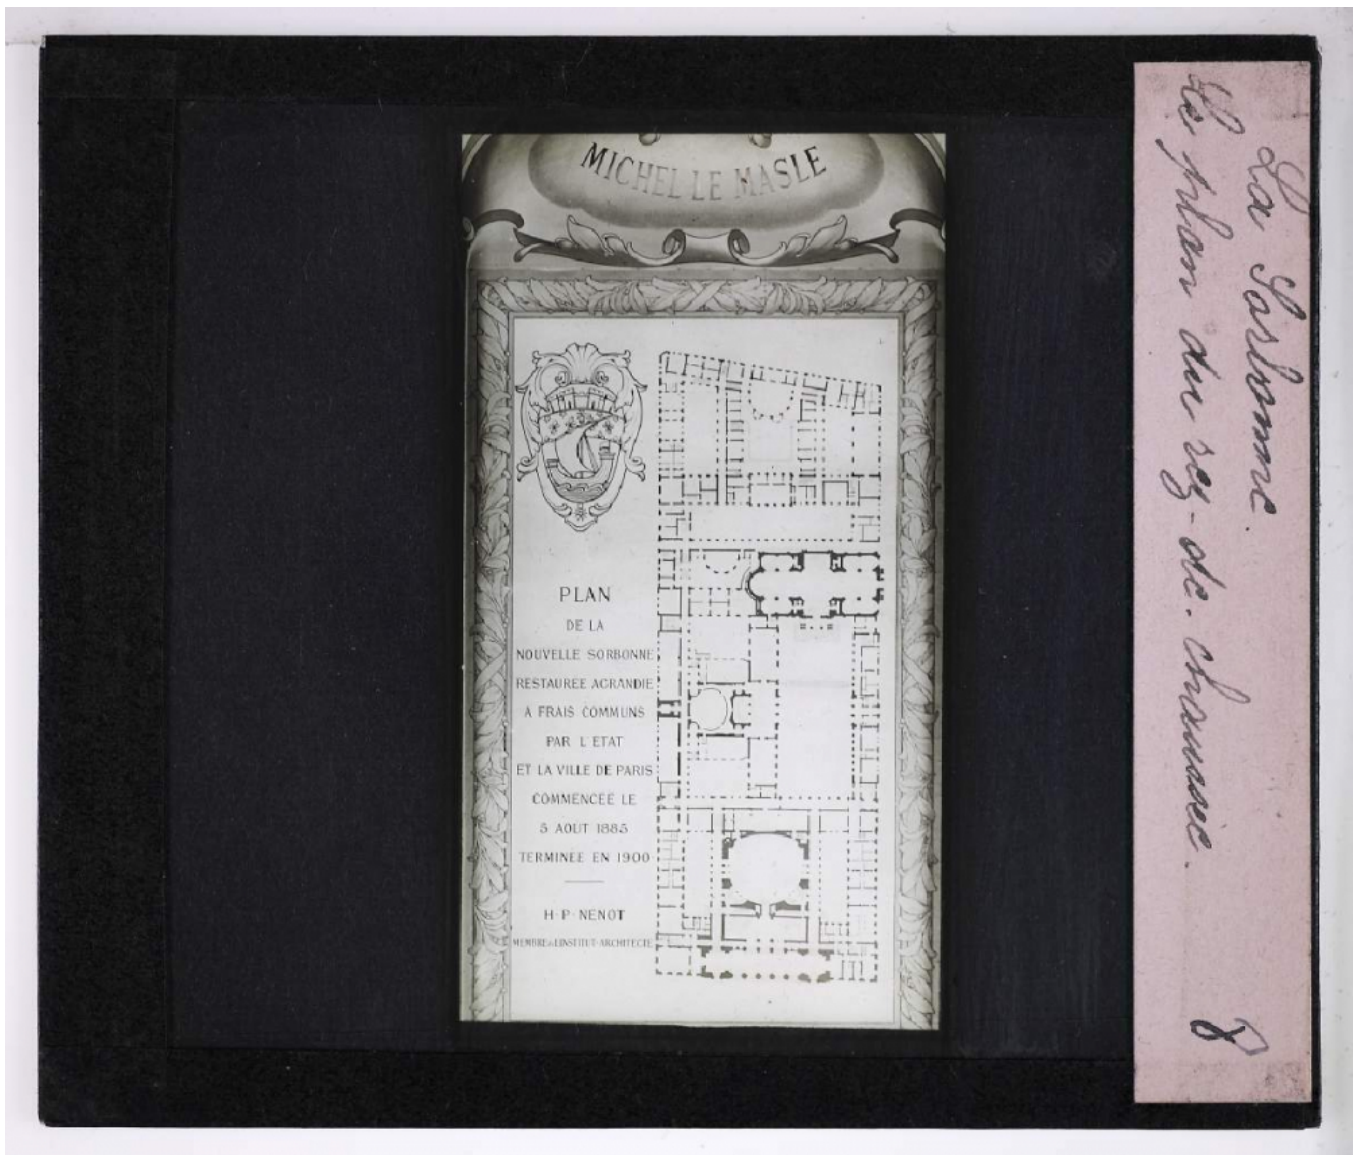 MICHEL LE MASLE
PLAN
DE LA
NOUVELLE SORBONNE
RESTAUREE AGRANDIE
A FRAIS COMMUNS
PAR L'ETAT
ET LA VILLE DE PARIS
COMMENCEE LE
5 AOUT 1885
TERMINEE EN 1900
H·P·NENOT
MEMBRE de L'INSTITUT·ARCHITECTE
La Sorbonne.
Le plan du rez-de-chaussée.
8